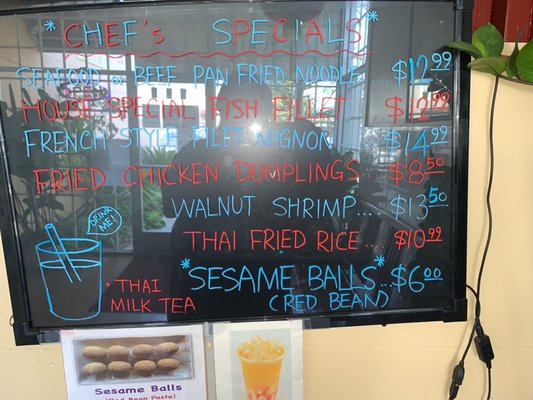 *CHEF's SPECIALS*
SEAFOOD or BEEF PAN FRIED NOODLE... $12.99
HOUSE SPECIAL FISH FILLET $12.99
FRENCH STYLE FILET MIGNON $14.99
FRIED CHICKEN DUMPLINGS... $8.50
WALNUT SHRIMP.... $13.50
THAI FRIED RICE... $10.99
*SESAME BALLS* $6.00
(RED BEAN)
DRINK ME!
• THAI
MILK TEA
Sesame Balls
(Red Bean Paste)